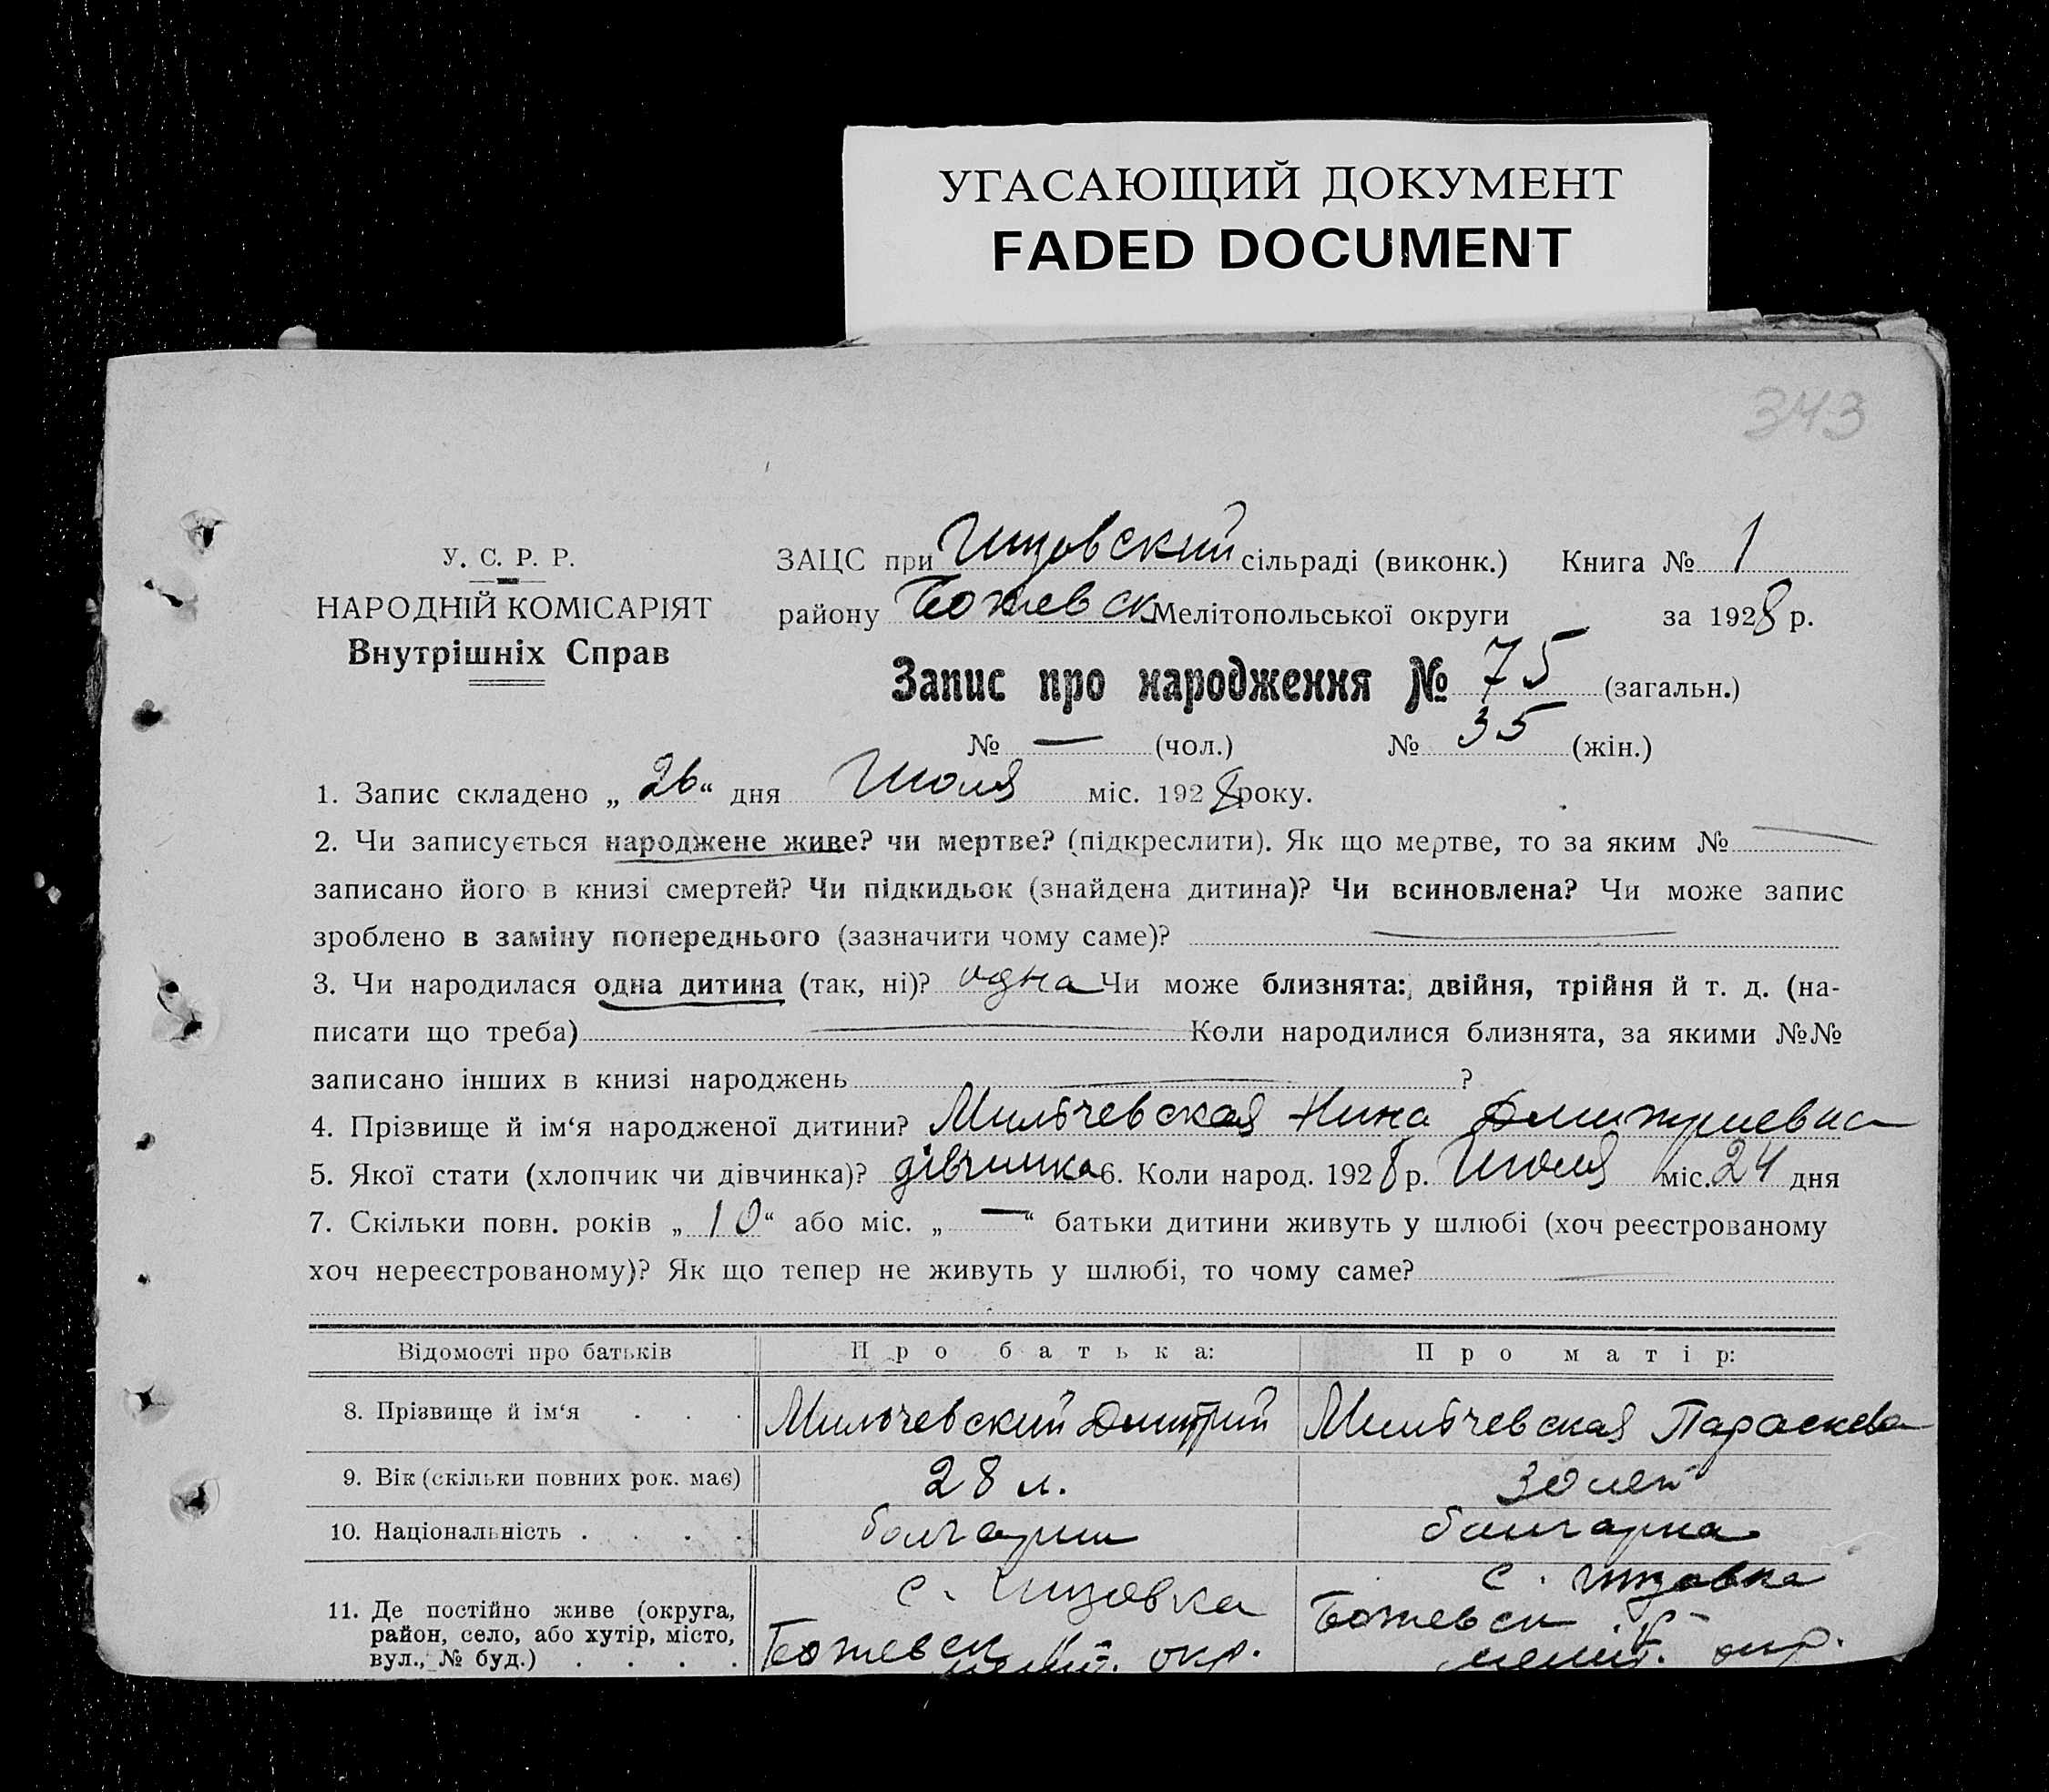 УГАСАЮЩИЙ ДОКУМЕНТ
FADED DOCUMENT
343
У. С. Р. Р.
НАРОДНІЙ КОМІСАРІЯТ
Внутрішніх Справ
ЗАЦС при Гизовский сільраді (виконк.) Книга № 1
району Божевск Мелітопольської округи за 1928 р.
Запис про народження № 75 (загальн.)
№ — (чол.) № 35 (жін.)
1. Запис складено „ 26 “ дня Июля міс. 1928 року.
2. Чи записується народжене живе? чи мертве? (підкреслити). Як що мертве, то за яким № —
записано його в книзі смертей? Чи підкидьок (знайдена дитина)? Чи всиновлена? Чи може запис
зроблено в заміну попереднього (зазначити чому саме)? —
3. Чи народилася одна дитина (так, ні)? одна Чи може близнята: двійня, трійня й т. д. (на-
писати що треба) — Коли народилися близнята, за якими №№
записано інших в книзі народжень — ?
4. Прізвище й ім‘я народженої дитини? Мильчевская Нина Дмитриевна
5. Якої стати (хлопчик чи дівчинка)? дівчинка 6. Коли народ. 1928 р. Июля міс. 24 дня
7. Скільки повн. років „ 10 “ або міс. „ — “ батьки дитини живуть у шлюбі (хоч реєстрованому
хоч нереєстрованому)? Як що тепер не живуть у шлюбі, то чому саме? —
Відомості про батьків Про батька: Про матір:
8. Прізвище й ім‘я . . . Мильчевский Дмитрий Мильчевская Параскева
9. Вік (скільки повних рок. має) 28 л. 30 лет
10. Національність . . . . болгарин болгарка
11. Де постійно живе (округа, район, село, або хутір, місто, вул., № буд.) . . . . с. Гизовка Божевск мелит. окр. с. Гизовка Божевск мелит. окр.